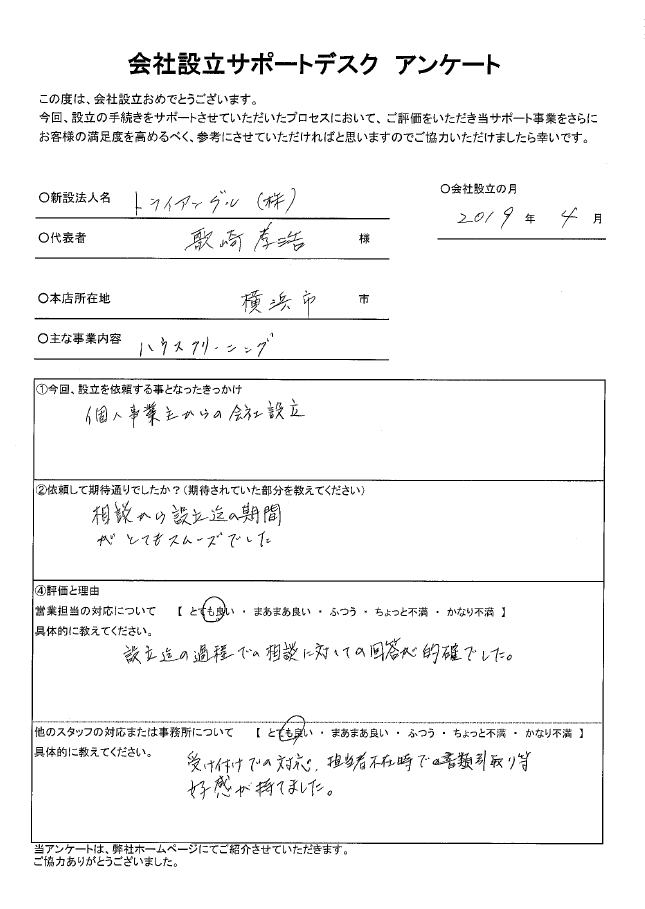 会社設立サポートデスク アンケート
この度は、会社設立おめでとうございます。
今回、設立の手続きをサポートさせていただいたプロセスにおいて、ご評価をいただき当サポート事業をさらに
お客様の満足度を高めるべく、参考にさせていただければと思いますのでご協力いただけましたら幸いです。
○新設法人名 トライアングル(株)
○会社設立の月
2019 年 4 月
○代表者 歌崎孝浩 様
○本店所在地 横浜市 市
○主な事業内容 ハウスクリーニング
①今回、設立を依頼する事となったきっかけ
個人事業主からの会社設立
②依頼して期待通りでしたか?(期待されていた部分を教えてください)
相談から設立迄の期間
がとてもスムーズでした
④評価と理由
営業担当の対応について 【 とても良い ・ まあまあ良い ・ ふつう ・ ちょっと不満 ・ かなり不満 】
具体的に教えてください。
設立迄の過程での相談に対しての回答が的確でした。
他のスタッフの対応または事務所について 【 とても良い ・ まあまあ良い ・ ふつう ・ ちょっと不満 ・ かなり不満 】
具体的に教えてください。
受け付けでの対応、担当者不在時での書類引取り等
好感が持てました。
当アンケートは、弊社ホームページにてご紹介させていただきます。
ご協力ありがとうございました。